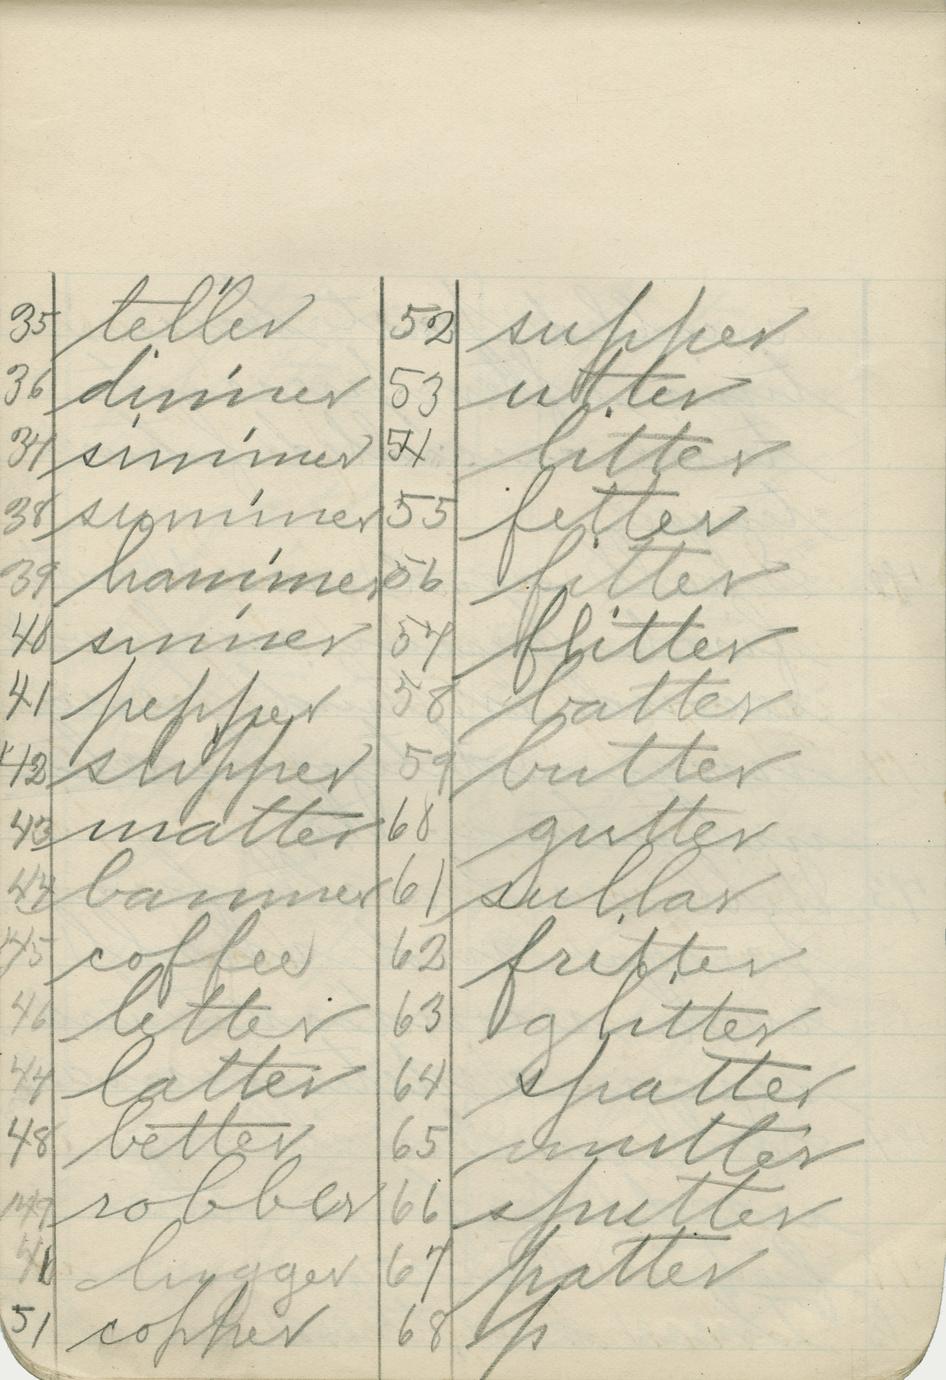 35 teller
36 dinner
37 simmer
38 summer
39 hammer
40 sinner
41 pepper
42 supper
43 matter
44 banner
45 coffee
46 letter
47 latter
48 better
49 robber
51 copper
52 supper
53 utter
54 litter
55 fetter
56 fitter
57 flitter
58 batter
59 butter
60 gutter
61 sullar
62 fritter
63 glitter
64 spatter
65 mutter
66 sputter
67 patter
68 p